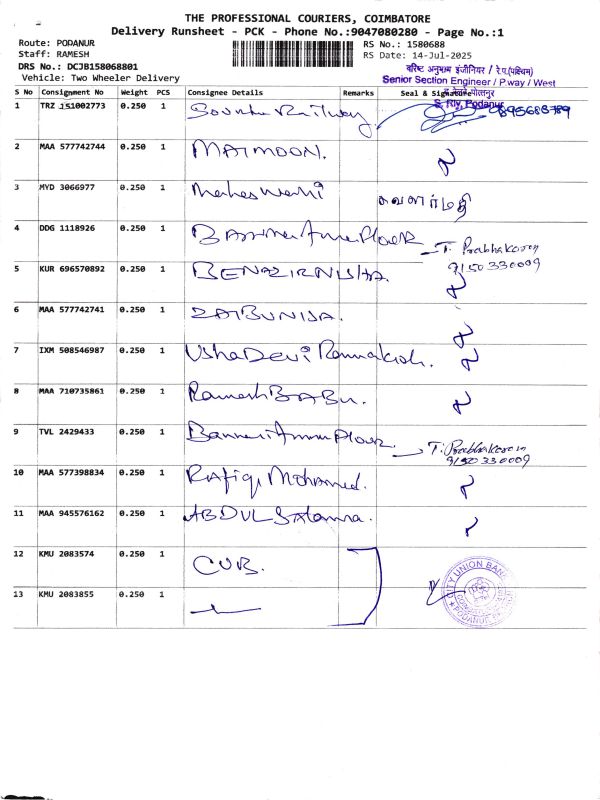 THE PROFESSIONAL COURIERS, COIMBATORE
Delivery Runsheet - PCK - Phone No.:9047080280 - Page No.:1
Route: PODANUR RS No.: 1580688
Staff: RAMESH RS Date: 14-Jul-2025
DRS No.: DCJB15068801
Vehicle: Two Wheeler Delivery
वरिष्ट अनुभाग इंजीनियर / रे.प(पश्चिम)
Senior Section Engineer / P way / West
S. Rly, Podanur
S No Consignment No Weight PCS Consignee Details Remarks Seal & Signature
1 TRZ 151002773 0.250 1
2 MAA 577742744 0.250 1 MAIMOON.
3 MYD 3066977 0.250 1 Maheswari வளர்மதி
4 DDG 1118926 0.250 1 T. Prabhakaran
9150330009
5 KUR 696570892 0.250 1 BENAZIRNISHA.
6 MAA 577742741 0.250 1 ZAIBUNISA.
7 IXM 508546987 0.250 1 Usha Devi
8 MAA 710735861 0.250 1 Ramesh BABU.
9 TVL 2429433 0.250 1 T. Prabhakaran
9150330009
10 MAA 577398834 0.250 1 Rafiq Mohamed.
11 MAA 945576162 0.250 1 ABDUL
12 KMU 2083574 0.250 1 CUB.
13 KMU 2083855 0.250 1
CITY UNION BANK